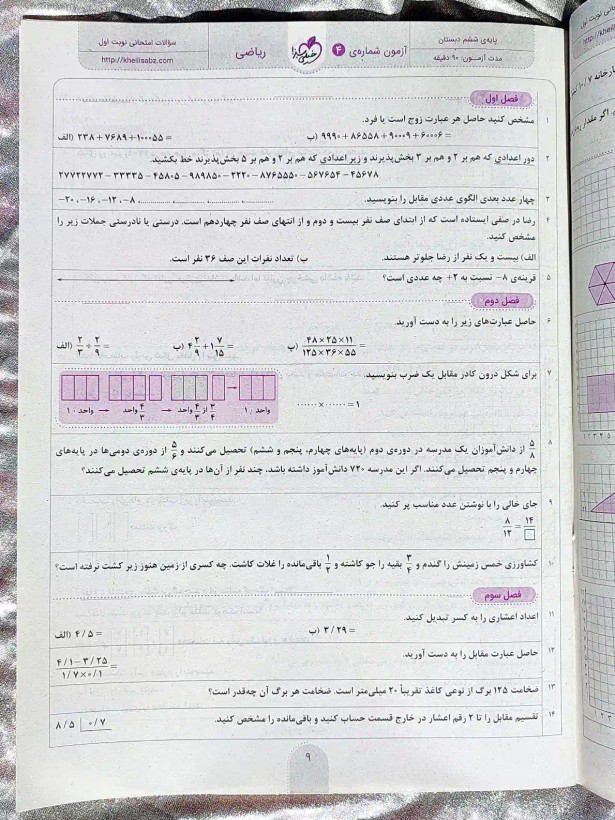 سؤالات امتحانی نوبت اول
http://kheilisabz.com
ریاضی
خیلی سبز
آزمون شماره‌ی ۴
پایه‌ی ششم دبستان
مدت آزمــون: ۹۰ دقیقه
فصل اول
۱ مشخص کنید حاصل هر عبارت زوج است یا فرد.
الف) ۲۳۸ + ۷۶۸۹ + ۱۰۰۰۵۵ =
ب) ۹۹۹۰ + ۸۶۵۵۸ + ۹۰۰۰۹ + ۶۰۰۰۶ =
۲ دور اعدادی که هم بر ۲ و هم بر ۳ بخش‌پذیرند و زیر اعدادی که هم بر ۲ و هم بر ۵ بخش‌پذیرند خط بکشید.
۲۷۷۲۲۷۷۲ - ۳۳۳۳۵ - ۴۵۸۰۵ - ۹۸۹۸۵۰ - ۲۲۲۰ - ۸۷۶۵۵۵۰ - ۵۶۷۶۵۴ - ۴۵۶۷۸
۳ چهار عدد بعدی الگوی عددی مقابل را بنویسید.
-۲۰، -۱۶، -۱۲، -۸، ............، ............، ............، ............
۴ رضا در صفی ایستاده است که از ابتدای صف نفر بیست و دوم و از انتهای صف نفر چهاردهم است. درستی یا نادرستی جملات زیر را
مشخص کنید.
الف) بیست و یک نفر از رضا جلوتر هستند.
ب) تعداد نفرات این صف ۳۶ نفر است.
۵ قرینه‌ی ۸- نسبت به ۲+ چه عددی است؟
فصل دوم
۶ حاصل عبارت‌های زیر را به دست آورید.
الف) ۲/۳ ÷ ۲/۹ =
ب) ۴ ۲/۹ + ۱ ۷/۱۵ =
پ) (۴۸×۲۵×۱۱)/(۱۲۵×۳۶×۵۵) =
۷ برای شکل درون کادر مقابل یک ضرب بنویسید.
...... × ...... = ۱
۱۰ واحد → ۴/۳ واحد → ۳/۴ از ۴/۳ واحد → ۱۰ واحد
۸ ۵/۸ از دانش‌آموزان یک مدرسه در دوره‌ی دوم (پایه‌های چهارم، پنجم و ششم) تحصیل می‌کنند و ۵/۶ از دوره‌ی دومی‌ها در پایه‌های
چهارم و پنجم تحصیل می‌کنند. اگر این مدرسه ۷۲۰ دانش‌آموز داشته باشد، چند نفر از آن‌ها در پایه‌ی ششم تحصیل می‌کنند؟
۹ جای خالی را با نوشتن عدد مناسب پر کنید.
۸/۱۲ = ۱۴/□
۱۰ کشاورزی خمس زمینش را گندم و ۳/۴ بقیه را جو کاشته و ۱/۲ باقی‌مانده را غلات کاشت. چه کسری از زمین هنوز زیر کشت نرفته است؟
فصل سوم
۱۱ اعداد اعشاری را به کسر تبدیل کنید.
الف) ۴/۵ =
ب) ۳/۲۹ =
۱۲ حاصل عبارت مقابل را به دست آورید.
(۴/۱ - ۳/۲۵)/(۱/۷ × ۰/۱) =
۱۳ ضخامت ۱۲۵ برگ از نوعی کاغذ تقریباً ۲۰ میلی‌متر است. ضخامت هر برگ آن چه‌قدر است؟
۱۴ تقسیم مقابل را تا ۲ رقم اعشار در خارج قسمت حساب کنید و باقی‌مانده را مشخص کنید.
۸/۵ | ۰/۷
۹